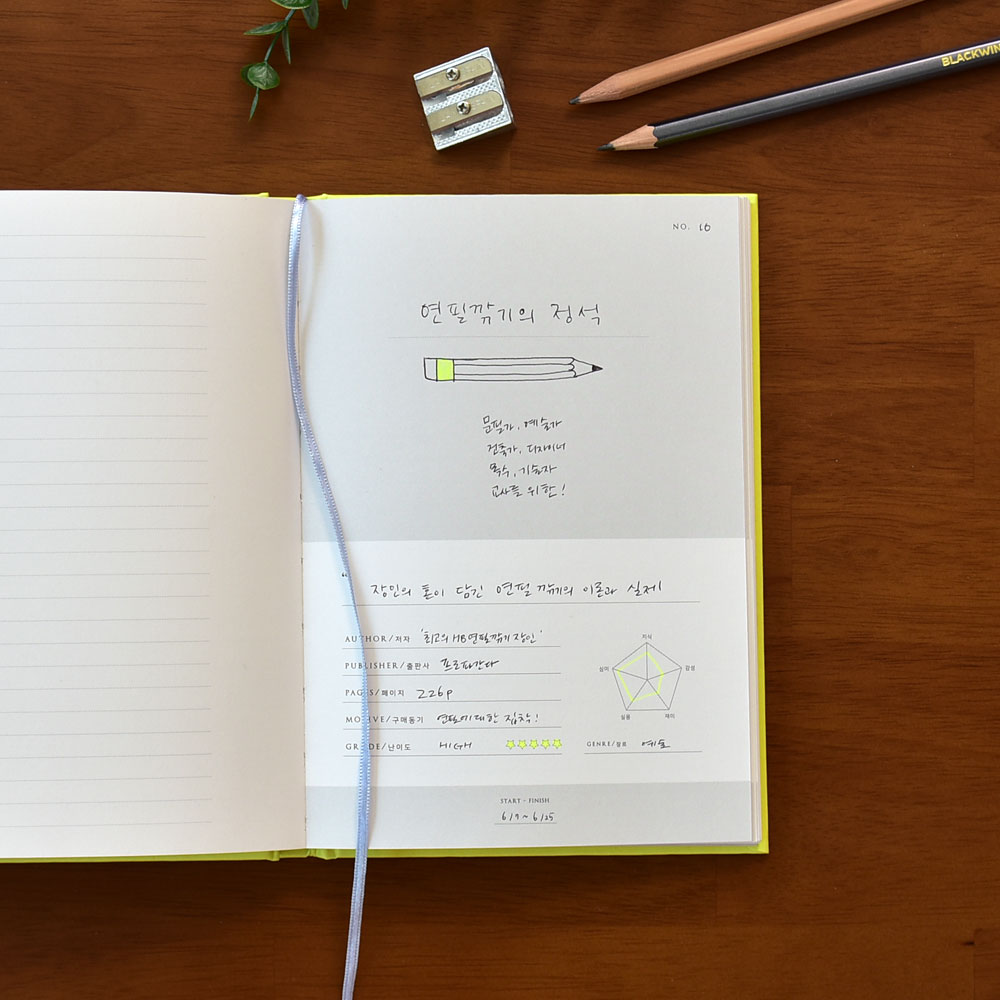 BLACKWIN
NO. 16
연필깎기의 정석
문필가, 예술가
건축가, 디자이너
목수, 기술자
교사를 위한!
“
장인의 혼이 담긴 연필 깎기의 이론과 실제
AUTHOR/저자 '최고의 HB연필깎기 장인'
PUBLISHER/출판사 프로파간다
PAGES/페이지 226p
MOTIVE/구매동기 연필에 대한 집착!
GRADE/난이도 HIGH
지식
심미 감성
실용 재미
GENRE/장르 예술
START - FINISH
6/9 ~ 6/25